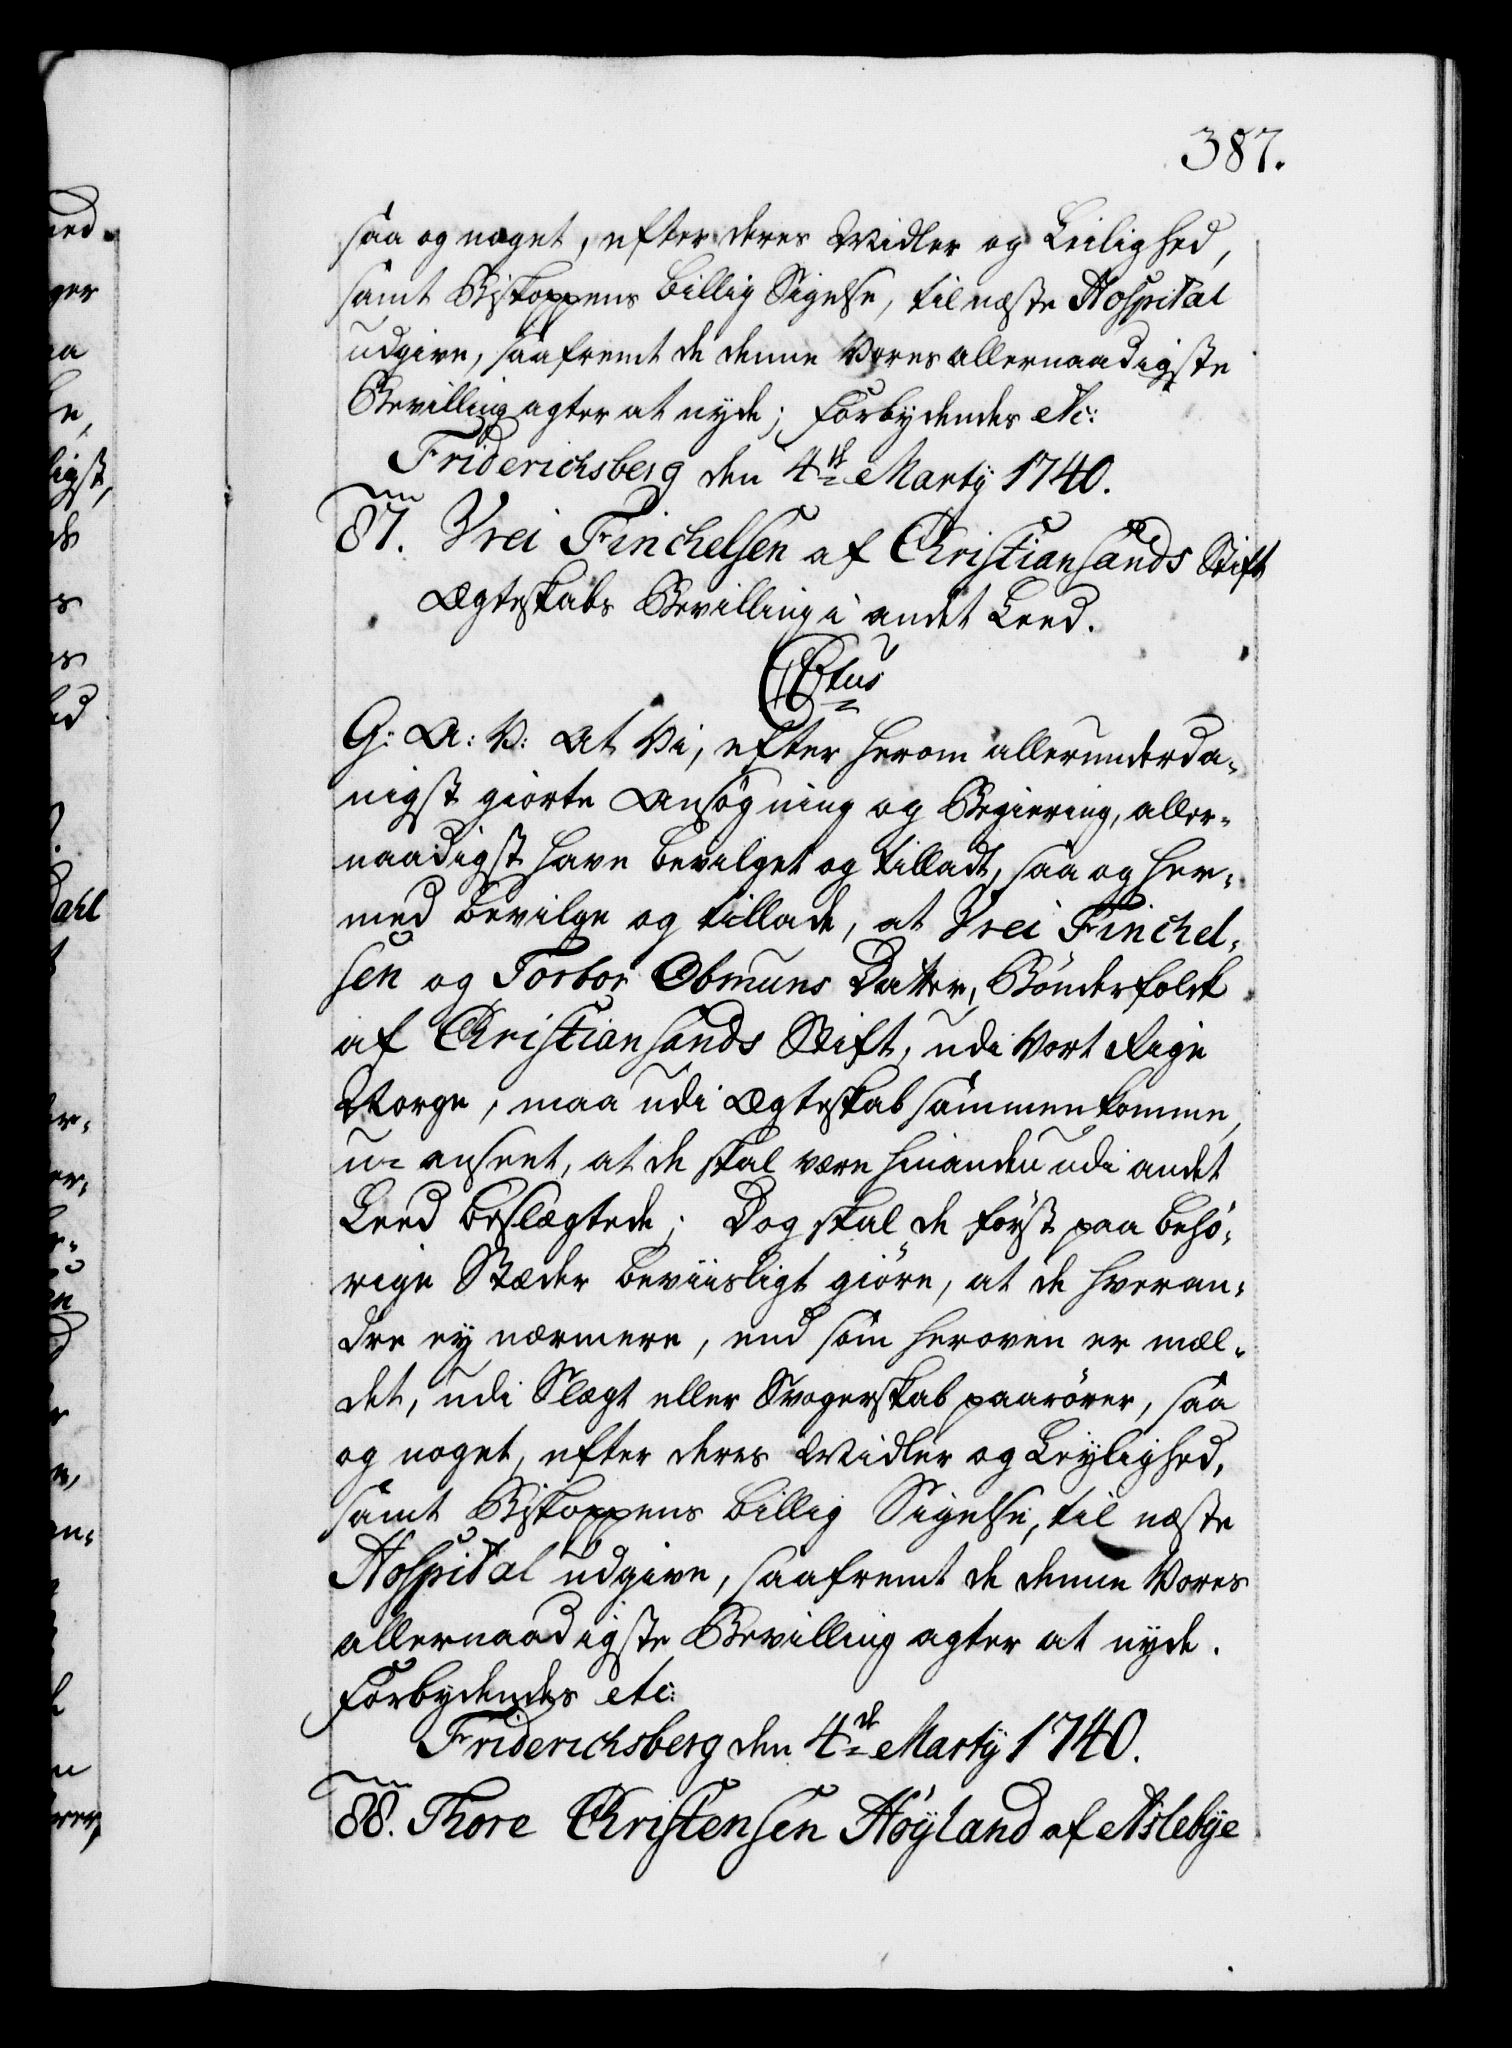 387.
saa og noget, efter deres Midler og Leilighed,
samt Biskoppens billig Sigelse, til næste Hospital
udgive, saafremt de denne Vores allernaadigste
Bevilling agter at nyde; Forbydendes etc:
Friderichsberg den 4de Martij 1740.
87. Vrei Finchelsen af Christiansands Stift
Ægteskabs Bevilling i andet Leed.
C6tus
G: A: V: At Vi, efter herom allerunderda-
nigst giorte Ansøgning og Begiering, aller-
naadigst have bevilget og tilladt, saa og her-
med bevilge og tillade, at Vrei Finchel-
sen og Torbor Obmuns Datter, Bønderfolk
af Christiansands Stift, udi Vort Rige
Norge, maa udi Ægteskab sammenkomme,
u-anseet, at de skal være hinanden udi andet
Leed beslægtede; Dog skal de først paa behø-
rige Stæder beviisligt giøre, at de hveran-
dre ey nærmere, end som heroven er mæl-
det, udi Slægt eller Svogerskab paarører, saa
og noget, efter deres Midler og Leylighed,
samt Biskoppens billig Sigelse, til næste
Hospital udgive, saafremt de denne Vores
allernaadigste Bevilling agter at nyde.
Forbydendes etc:
Friderichsberg den 4de Martij 1740.
88. Thore Christensen Høyland af Aslebye